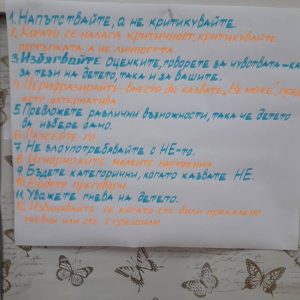 1. Напътствайте, а не критикувайте.
2. Когато се налага критичност, критикувайте
постъпката, а не личността.
3. Избягвайте оценките, говорете за чувствата – ка-
за тези на детето, така и за вашите.
4. Перифразирайте – вместо да казвате „Не може",
дайте алтернатива
5. Предложете различни възможности, така че детето
да избере само.
6. Пазсейте го
7. Не злоупотребявайте с НЕ-то.
8. Игнорирайте малките нарушения
9. Бъдете категорични, когато казвате НЕ.
10. Бъдете преговори
11. Уважете гнева на детето.
12. Извинявайте се когато сте били прекалено
гневни или сте сгрешили